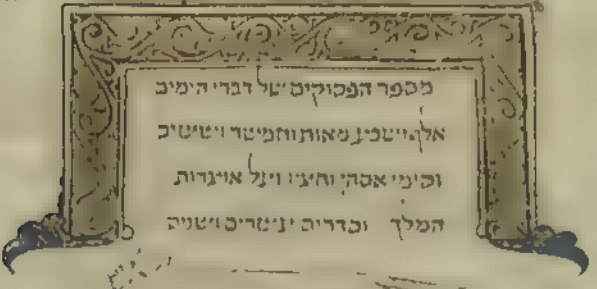 מספר הפסוקים של דברי הימים
אלף ושבע מאות וחמשה וששים
וחציו ועל אוצרות
המלך וסדריה עשרים ושנים